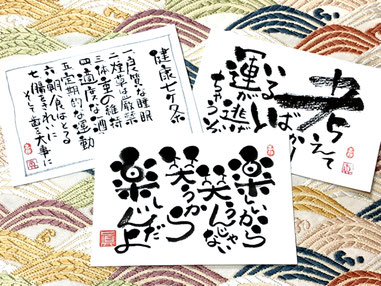 健康七ケ条
一良質な睡眠
二煙草は厳禁
三体重の維持
四適度な酒
五定期的な運動
六朝食はとる
七
そして
大事に
考えて
ばかり
いると
運が逃げ
楽しいから
笑うんじゃない
笑うから
楽しいんだよ